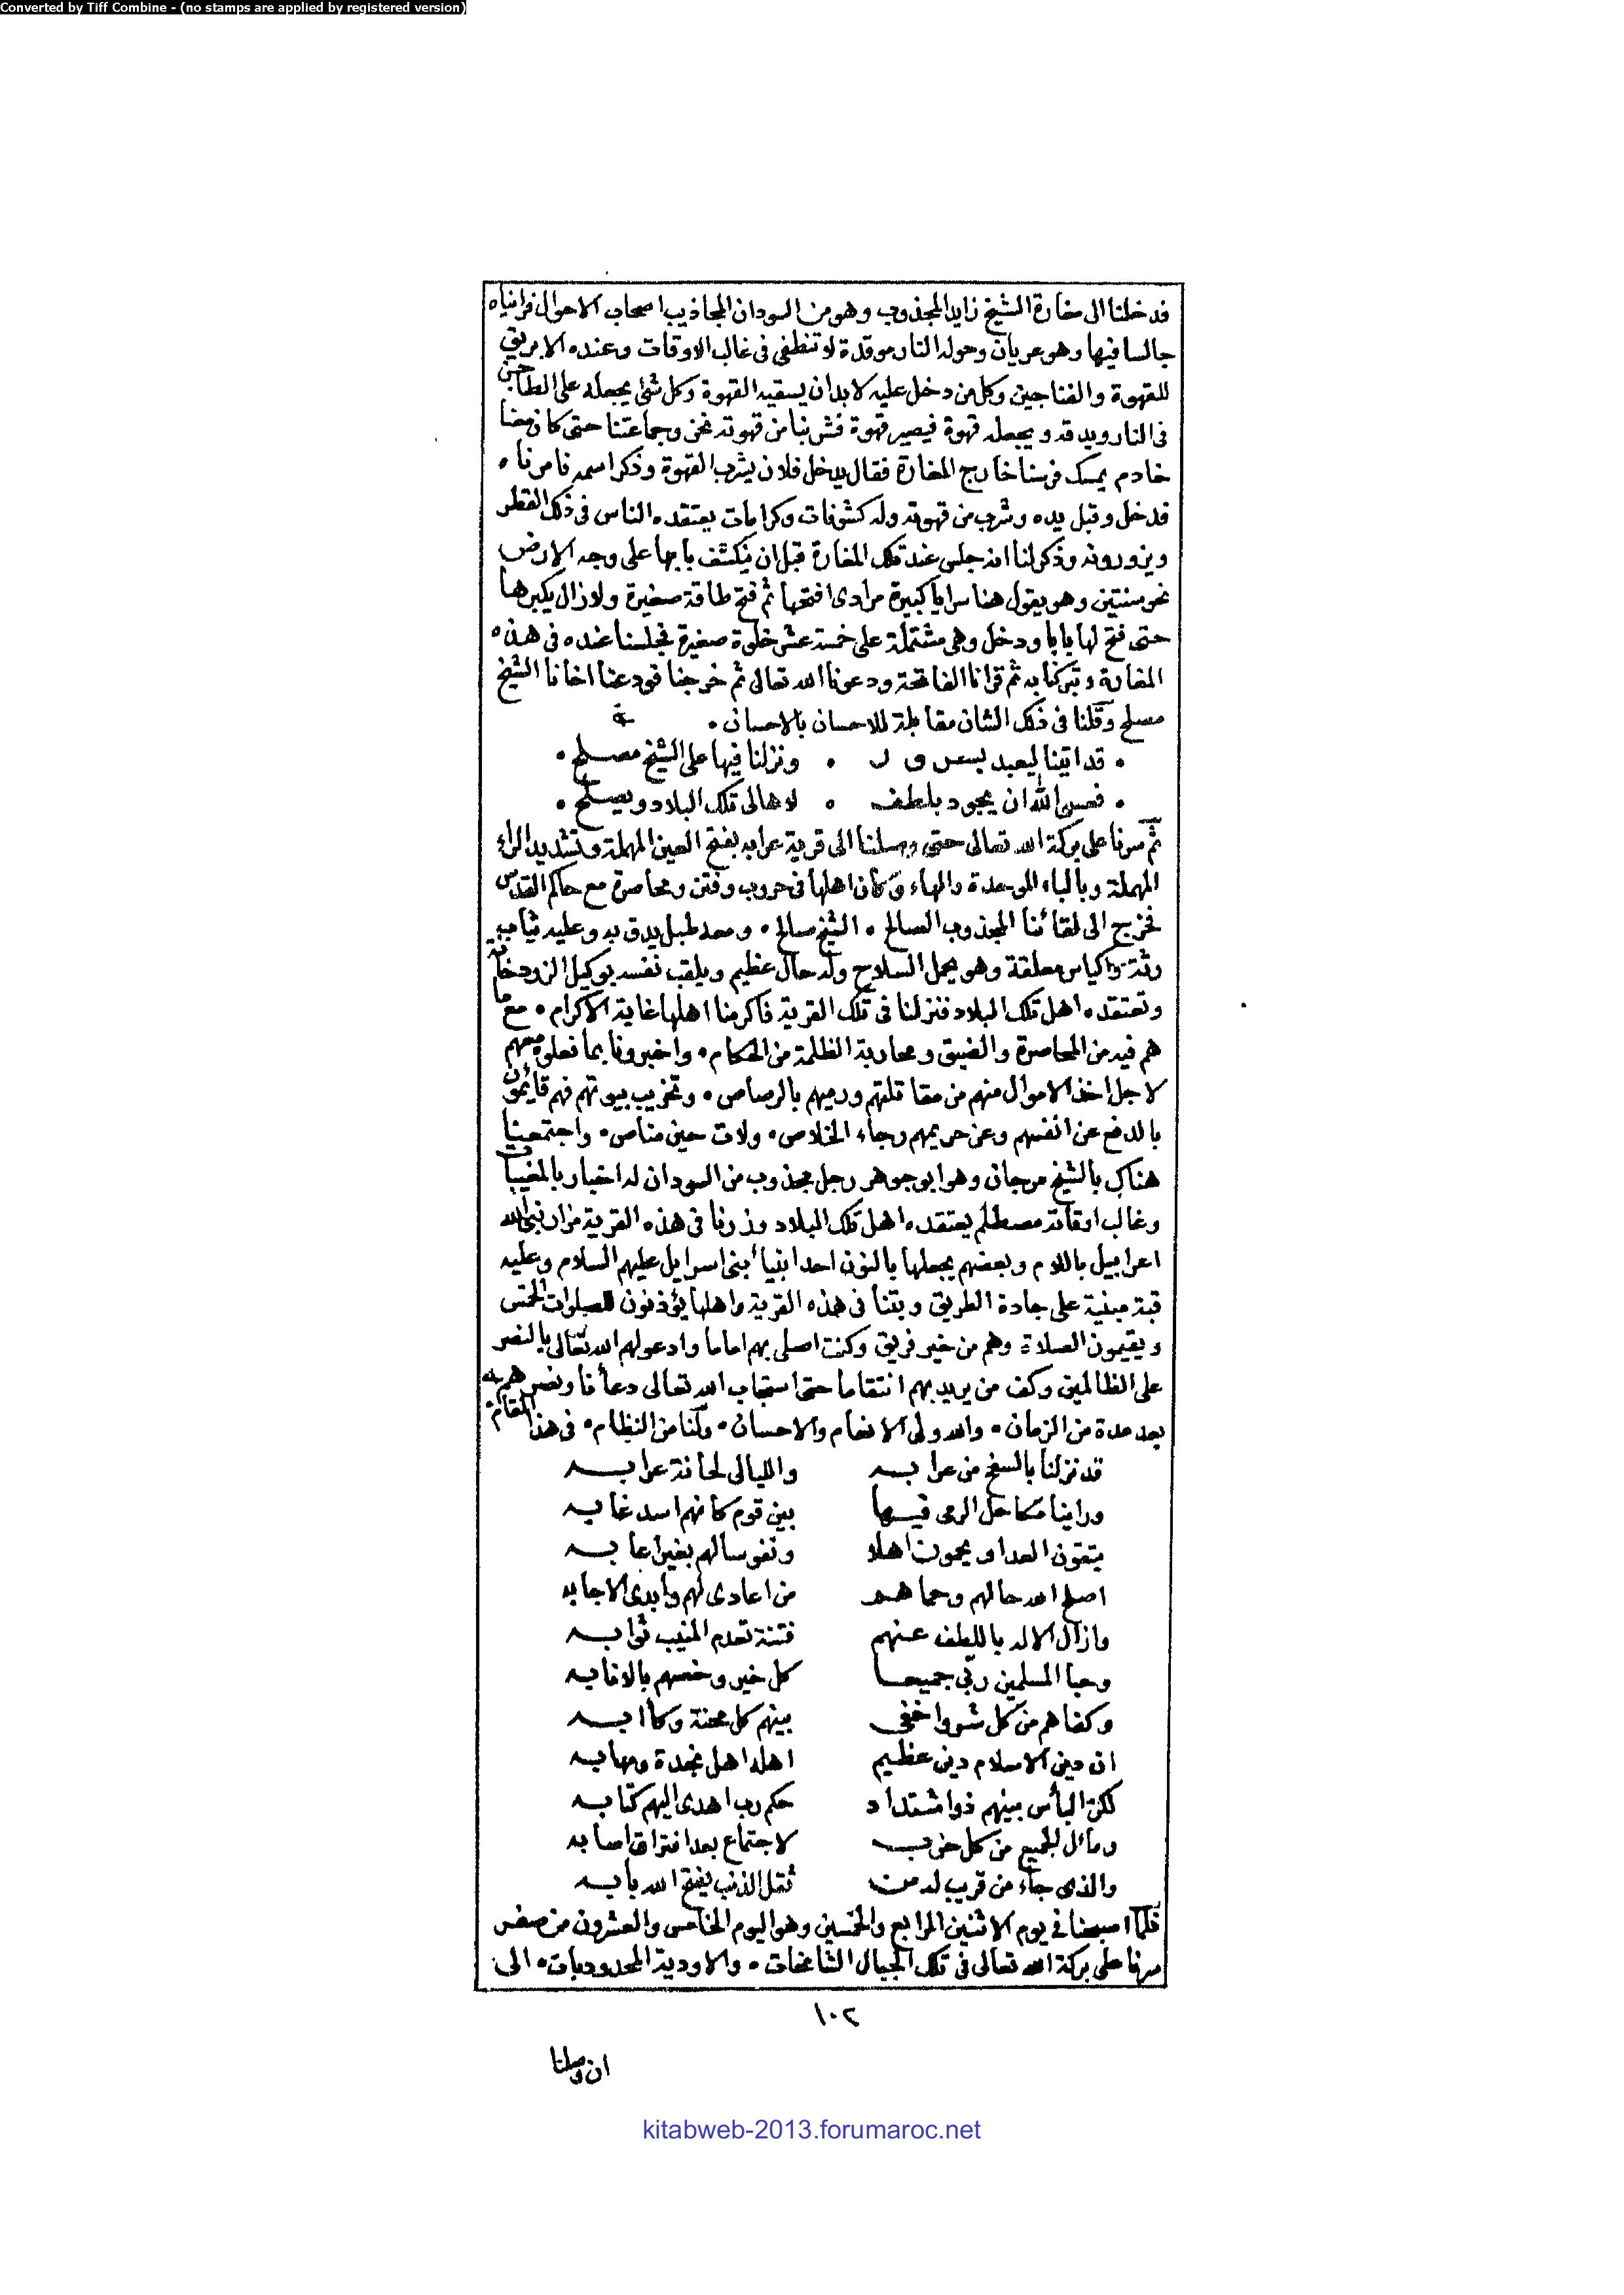 Converted by Tiff Combine - (no stamps are applied by registered version)
فدخلنا الى مغارة الشيخ زايد المجذوب وهو من السودان المجاذيب اصحاب الاحوال فرايناه
جالسا فيها وهو عريان وحوله النار موقدة لا تنطفى فى غالب الاوقات وعنده الابريق
للقهوة والفناجين وكل من دخل عليه لا بد ان يسقيه القهوة وكل شئ يجعله على الطاجن
فى النار ويدقه ويجعله قهوة فيصير قهوة فشربنا من قهوته نحن وجماعتنا حتى كان معنا
خادم يمسك فرسنا خارج المغارة فقال يدخل فلان يشرب القهوة وذكر اسمه فامرناه
فدخل وقبل يده وشرب من قهوته وله كشوفات وكرامات يعتقده الناس فى ذلك القطر
ويزورونه وذكر لنا انه جلس عند تلك المغارة قبل ان ينكشف بابها على وجه الارض
نحو سنتين وهو يقول هنا سرايا كبيرة مرادى افتحها ثم فتح طاقة صغيرة ولا زال يكبرها
حتى فتح لها بابا ودخل وهى مشتملة على خمسة عشر خلوة صغيرة فجلسنا عنده فى هذه
المغارة وتبركنا به ثم قرانا الفاتحة ودعونا الله تعالى ثم خرجنا فودعنا اخانا الشيخ
مصلح وقلنا فى ذلك الشان مقابلة للاحسان بالاحسان •
• قد اتينا ليعبد بسرور • ونزلنا فيها على الشيخ مصلح •
• فعسى الله ان يجود بلطف • لاهالى تلك البلاد ويصلح •
ثم سرنا على بركة الله تعالى حتى وصلنا الى قرية عرابه بفتح العين المهملة وتشديد الراء
المهملة وبالباء الموحدة والهاء وكان اهلها فى حروب وفتن ومحاصرة مع حاكم القدس
فخرج الى لقائنا المجذوب الصالح • الشيخ صالح • ومعه طبل يدق به وعليه ثياب
رثة واكياس معلقة وهو يحمل السلاح وله حال عظيم ويلقب نفسه بوكيل الزردخانة
وتعتقده اهل تلك البلاد فنزلنا فى تلك القرية فاكرمنا اهلها غاية الاكرام • مع ما
هم فيه من المحاصرة والضيق ومحاربة الظلمة من الحكام • واخبرونا بما فعلوه معهم
لاجل اخذ الاموال منهم من مقاتلتهم ورميهم بالرصاص • وتخريب بيوتهم فهم قائمون
بالدفع عن انفسهم وعن حريمهم رجاء الخلاص • ولات حين مناص • واجتمعنا
هناك بالشيخ مرجان وهو ابو جوهر رجل مجذوب من السودان له اخبار بالمغيبات
وغالب اوقاته مصطلم يعتقده اهل تلك البلاد وزرنا فى هذه القرية مزار نبى الله
اعرابيل باللام وبعضهم يجعلها بالنون احد انبياء بنى اسرايل عليهم السلام وعليه
قبة مبنية على جادة الطريق وبتنا فى هذه القرية واهلها يؤذنون للصلوات الخمس
ويقيمون الصلاة وهم من خير فريق وكنت اصلى بهم اماما وادعو لهم الله تعالى بالنصر
على الظالمين وكف من يريد بهم انتقاما حتى استجاب الله تعالى دعاءنا ونصرهم
بعد مدة من الزمان • والله ولى الانعام والاحسان • ولنا من النظام • فى هذا المقام
قد نزلنا بالسفح من عرابه والليالى لحانة عرابه
وراينا مكاحل الرمى فيها بين قوم كانهم اسد غابه
يتقون العدا ويحمون اهلا ونفوسا لهم بغير اعابه
اصلح الله حالهم وحماهم من اعادى لهم وابدى الاجابه
وازال الاله باللطف عنهم فتنة تعدم المنيب ثوابه
وحبا المسلمين ربى جميعا كل خير وخصهم بالانابه
وكفاهم من كل سوء واخفى بينهم كل محنة وكآبه
ان دين الاسلام دين عظيم اهله اهل نجدة ومهابه
لكن البأس بينهم ذو اشتداد حكم رب اهدى اليهم كتابه
ومآل الجميع من كل حزب لاجتماع بعد افتراق اصابه
والذى جاء من قريب له من ثقل الذنب يفتح الله بابه
فلما اصبحنا فى يوم الاثنين الرابع والخمسين وهو اليوم الخامس والعشرون من صفر
سرنا على بركة الله تعالى فى تلك الجبال الشامخات • والاودية المحدودبات • الى
١٠٢
ان وصلنا
kitabweb-2013.forumaroc.net